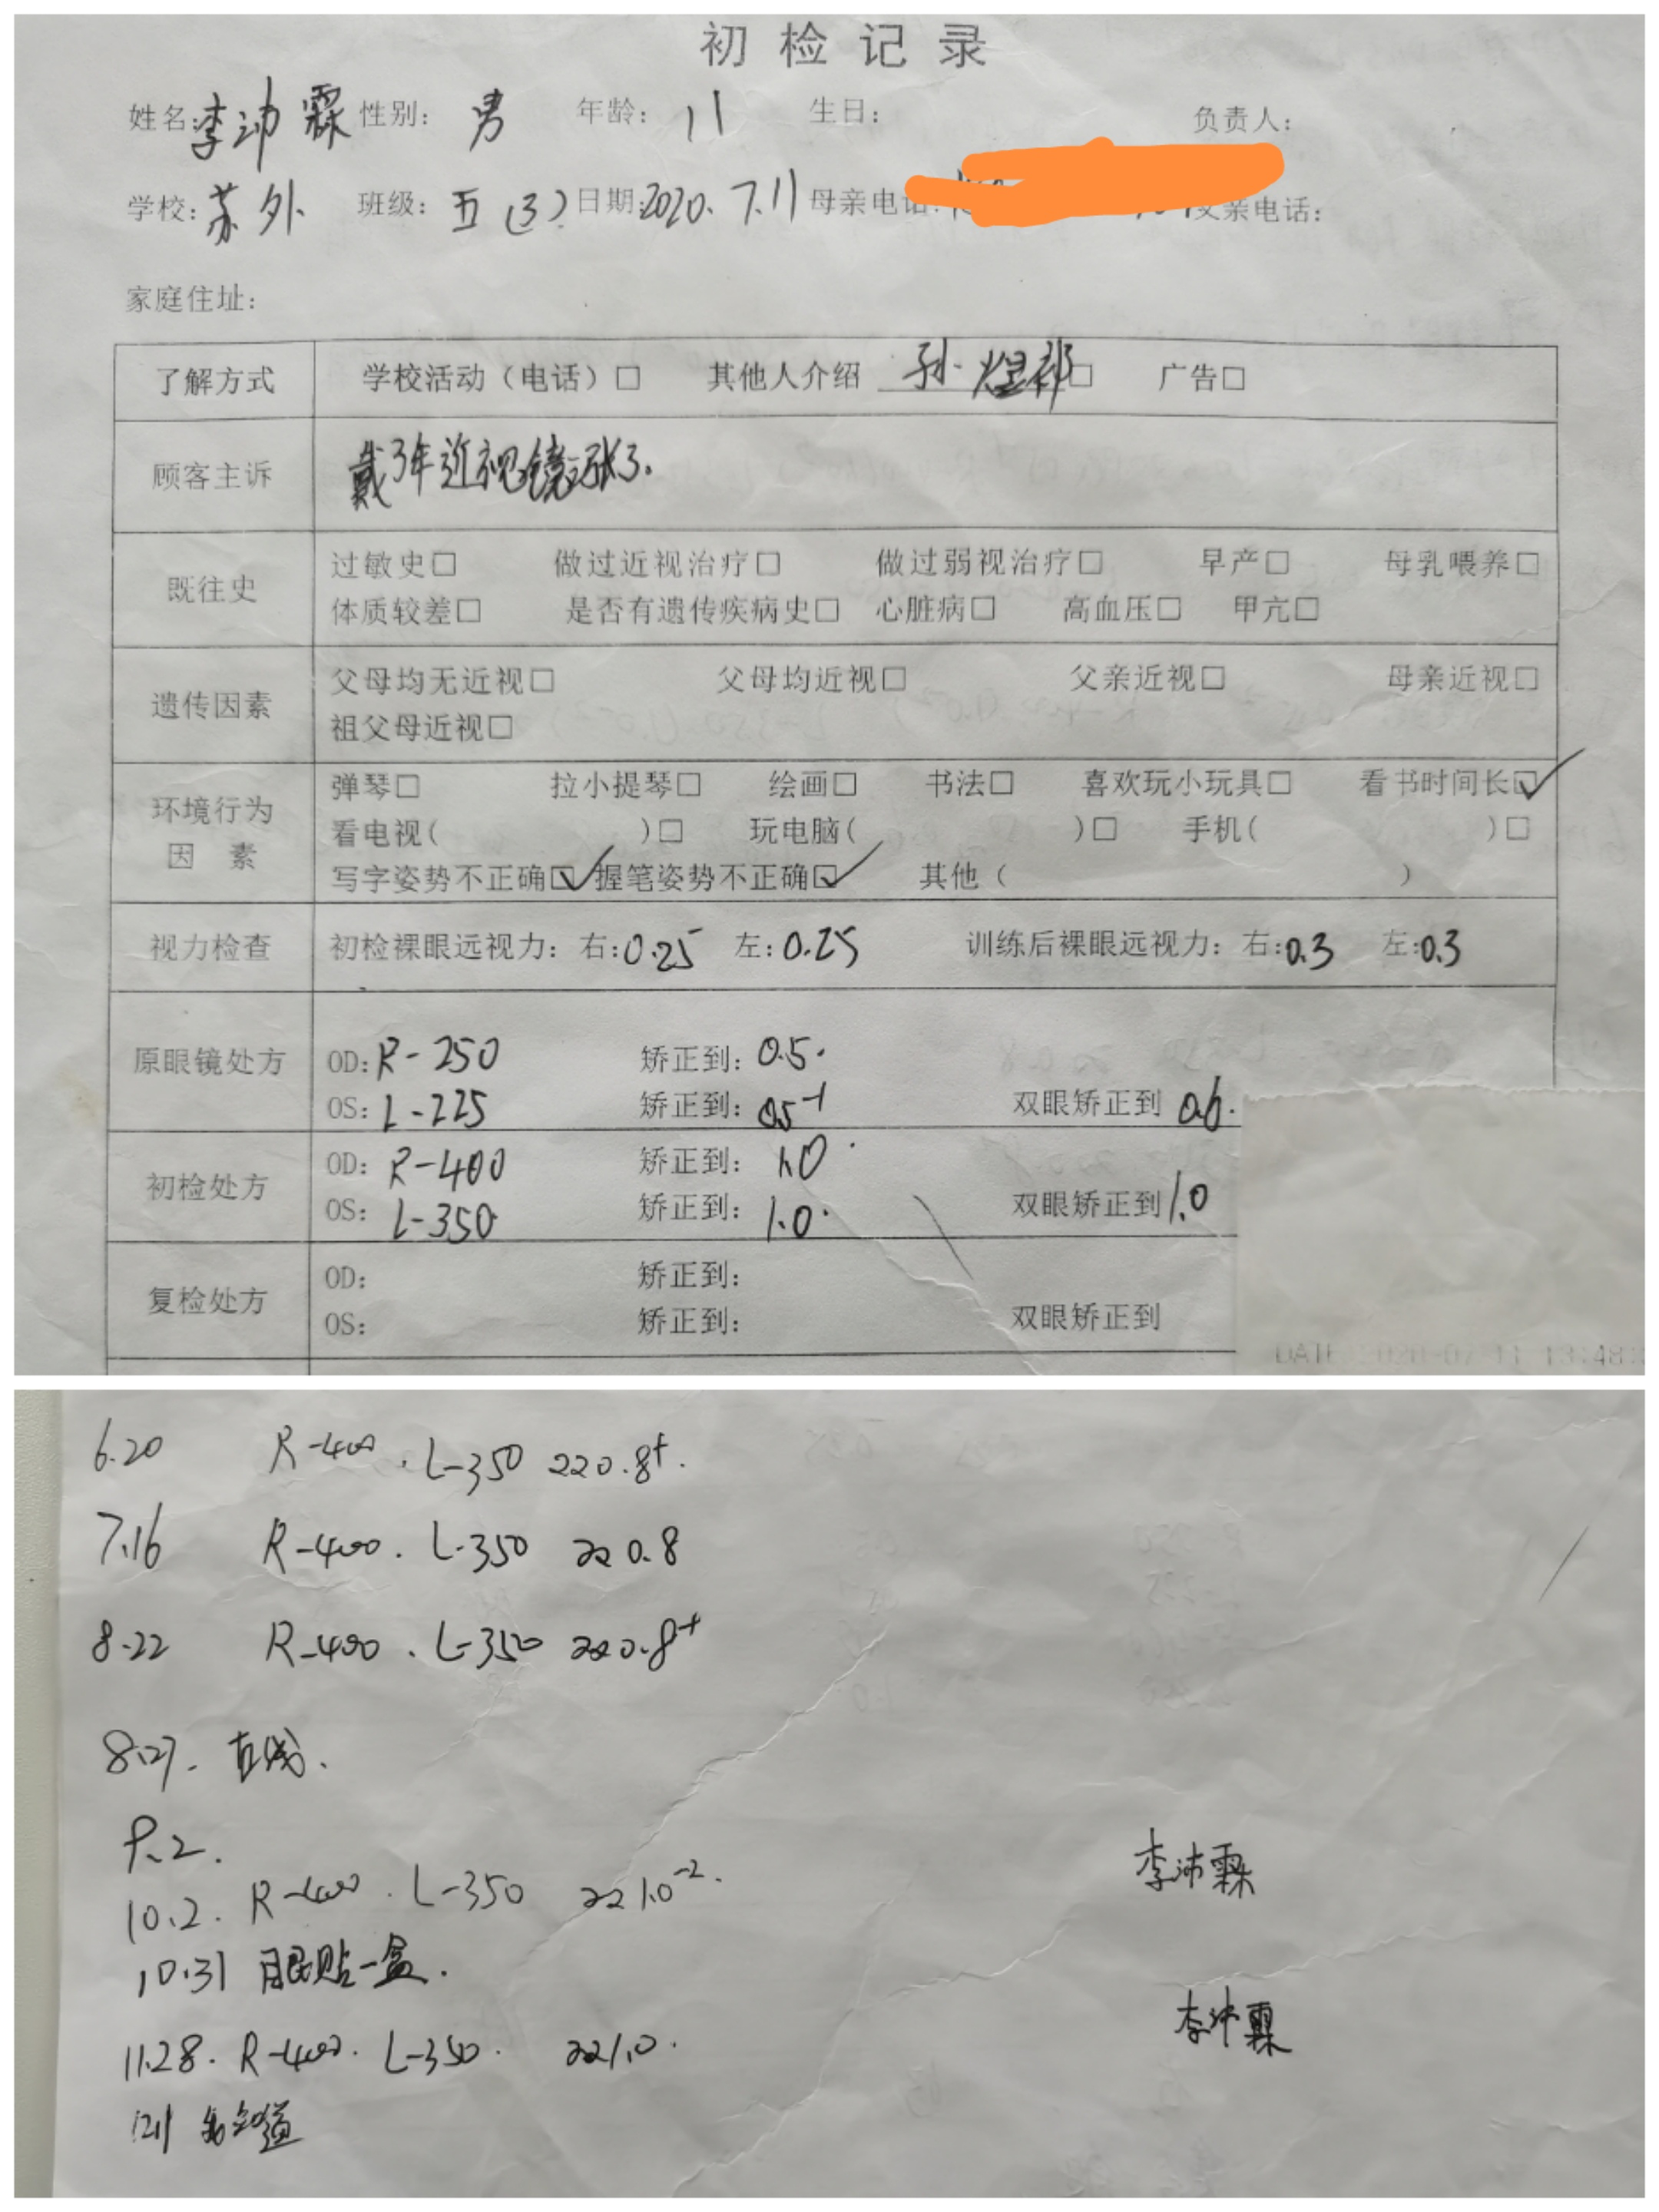 初检记录
姓名:李沛霖 性别: 男 年龄: 11 生日: 负责人:
学校:苏外 班级:五(3) 日期:2020.7.11 母亲电话: 父亲电话:
家庭住址:
了解方式 学校活动（电话）□ 其他人介绍 孙 □ 广告□
顾客主诉 戴3年近视镜涨了.
既往史 过敏史□ 做过近视治疗□ 做过弱视治疗□ 早产□ 母乳喂养□
体质较差□ 是否有遗传疾病史□ 心脏病□ 高血压□ 甲亢□
遗传因素 父母均无近视□ 父母均近视□ 父亲近视□ 母亲近视□
祖父母近视□
环境行为因素 弹琴□ 拉小提琴□ 绘画□ 书法□ 喜欢玩小玩具□ 看书时间长☑
看电视( )□ 玩电脑( )□ 手机( )□
写字姿势不正确☑ 握笔姿势不正确☑ 其他（ ）
视力检查 初检裸眼远视力: 右:0.25 左:0.25 训练后裸眼远视力: 右:0.3 左:0.3
原眼镜处方 OD: R-250 矫正到: 0.5.
OS: L-225 矫正到: 0.5⁻¹ 双眼矫正到 0.6.
初检处方 OD: R-400 矫正到: 1.0
OS: L-350 矫正到: 1.0. 双眼矫正到 1.0
复检处方 OD: 矫正到:
OS: 矫正到: 双眼矫正到
DATE 2020-07-11 13:48
6.20 R-400 . L-350 220.8⁺.
7.16 R-400 . L-350 220.8
8.22 R-400 . L-350 220.8⁺
8.27. 在线.
9.2.
10.2. R-400 . L-350 221.0⁻². 李沛霖
10.31 眼贴一盒.
11.28. R-400. L-350. 221.0. 李沛霖
12.11